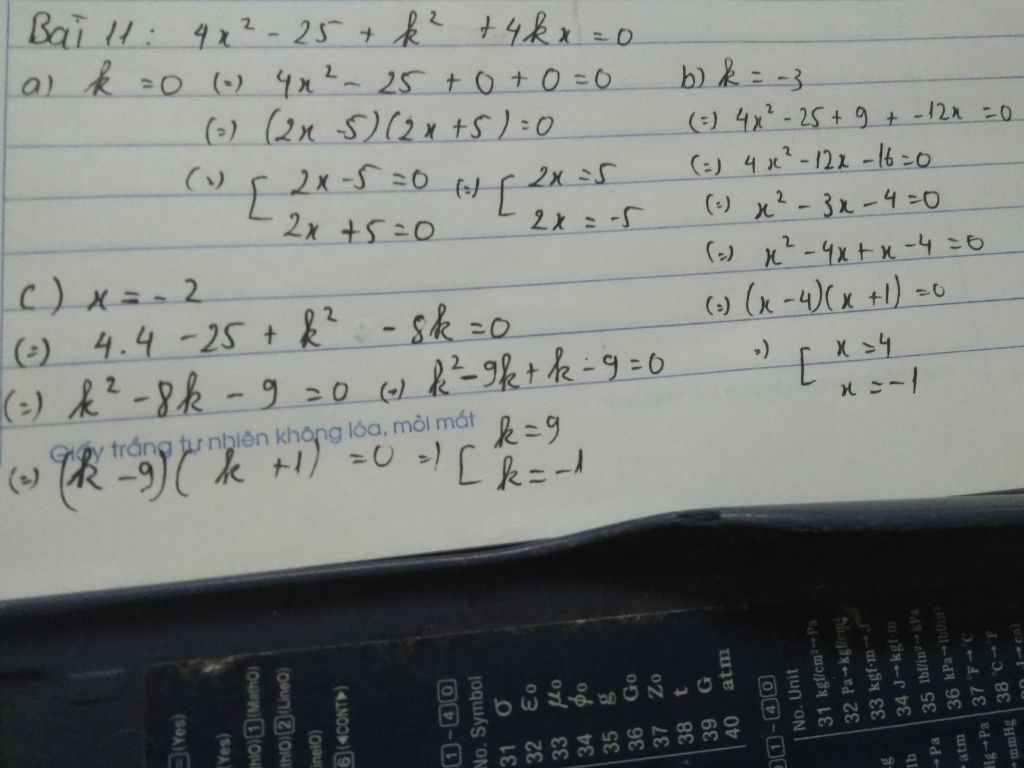 Bài 11: 4x² - 25 + k² + 4kx = 0
a) k = 0 (=) 4x² - 25 + 0 + 0 = 0
(=) (2x - 5)(2x + 5) = 0
(=) [ 2x - 5 = 0 (=) [ 2x = 5
2x + 5 = 0 2x = -5
b) k = -3
(=) 4x² - 25 + 9 + -12x = 0
(=) 4x² - 12x - 16 = 0
(=) x² - 3x - 4 = 0
(=) x² - 4x + x - 4 = 0
(=) (x - 4)(x + 1) = 0
=) [ x = 4
x = -1
c) x = -2
(=) 4.4 - 25 + k² - 8k = 0
(=) k² - 8k - 9 = 0 (=) k² - 9k + k - 9 = 0
Giấy trắng tự nhiên không lóa, mỏi mắt
(=) (k - 9)(k + 1) = 0 =) [ k = 9
k = -1
= (Yes)
(Yes)
1 (MathO)
2 (LineO)
6 (◄CONT►)
1 - 40
No. Symbol
31 σ
32 ε₀
33 μ₀
34 φ₀
35 g
36 G₀
37 Z₀
38 t
39 G
40 atm
1 - 40
No. Unit
31 kgf/cm²→Pa
32 Pa→kgf/cm²
33 kgf·m→J
34 J→kgf·m
35 lbf/in²→kPa
36 kPa→lbf/in²
37 °F→C
38 °C→F